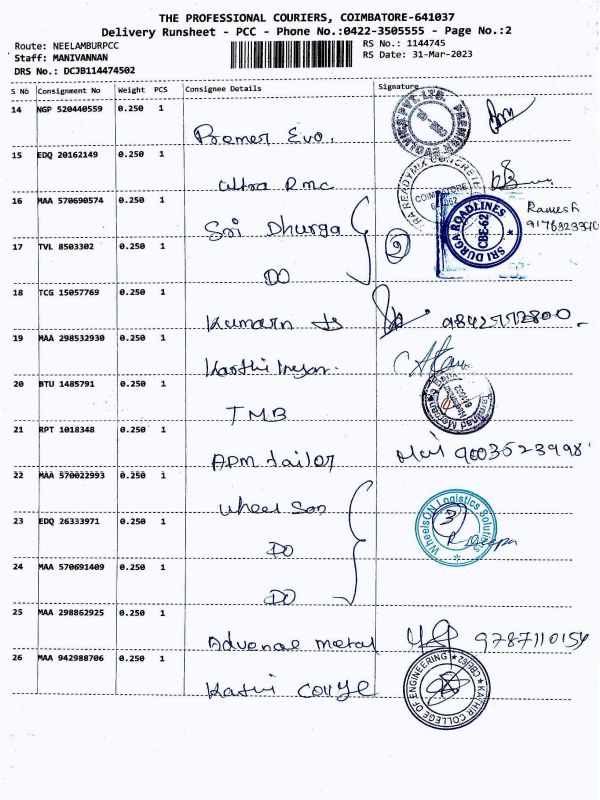 THE PROFESSIONAL COURIERS, COIMBATORE-641037
Delivery Runsheet - PCC - Phone No.:0422-3505555 - Page No.:2
Route: NEELAMBURPCC RS No.: 1144745
Staff: MANIVANNAN RS Date: 31-Mar-2023
DRS No.: DCJB114474502
S No Consignment No Weight PCS Consignee Details Signature
14 NGP 520440559 0.250 1
Premer Evo.
PREMIER EVOLVICS PVT. LTD.
15 EDQ 20162149 0.250 1
Ultra RMC
COIMBATORE
16 MAA 570690574 0.250 1
Sri Dhurga
SRI DURGA ROADLINES CBE-62
Ramesh
17 TVL 8503302 0.250 1
DO
18 TCG 15057769 0.250 1
Kumarn
19 MAA 298532930 0.250 1
20 BTU 1485791 0.250 1
TMB
21 RPT 1018348 0.250 1
tailor 9003523998
22 MAA 570022993 0.250 1
wheel Son
WheelsON Logistics Solutions
23 EDQ 26333971 0.250 1
DO
Deepa
24 MAA 570691409 0.250 1
DO
25 MAA 298862925 0.250 1
metal
26 MAA 942988706 0.250 1
KATHIR COLLEGE OF ENGINEERING